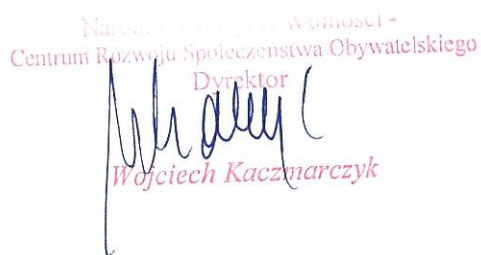 Wolności -
Centrum Rozwoju Społeczeństwa Obywatelskiego
Dyrektor
Wojciech Kaczmarczyk